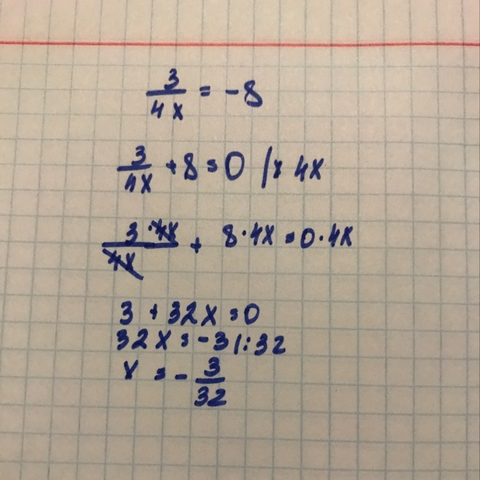 3/4x = -8
3/4x + 8 = 0 | × 4x
3·4x/4x + 8·4x = 0·4x
3 + 32x = 0
32x = -3 |:32
x = - 3/32